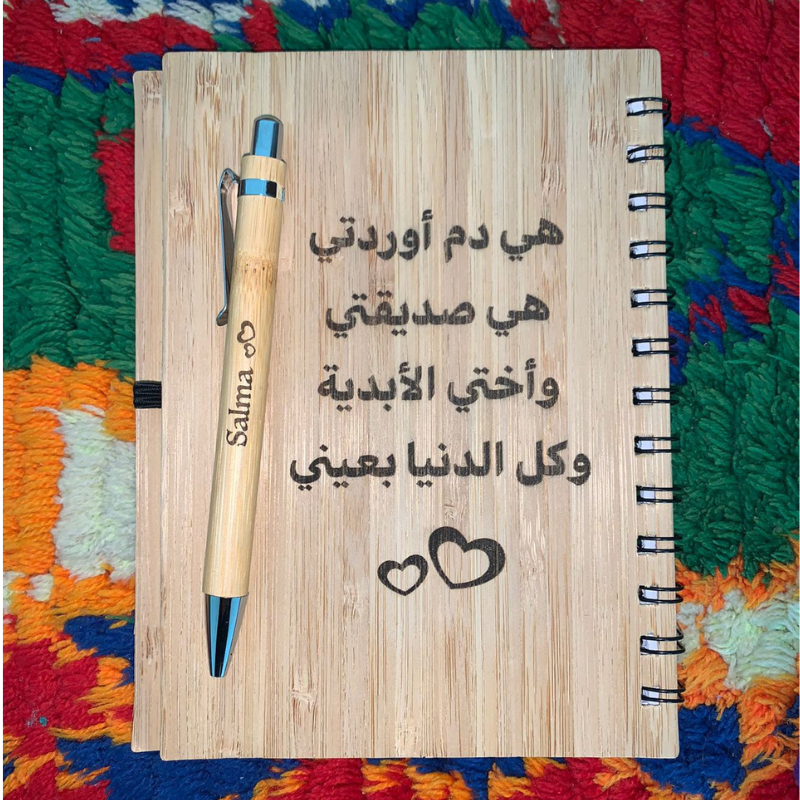 هي دم أوردتي
هي صديقتي
وأختي الأبدية
وكل الدنيا بعيني
Salma